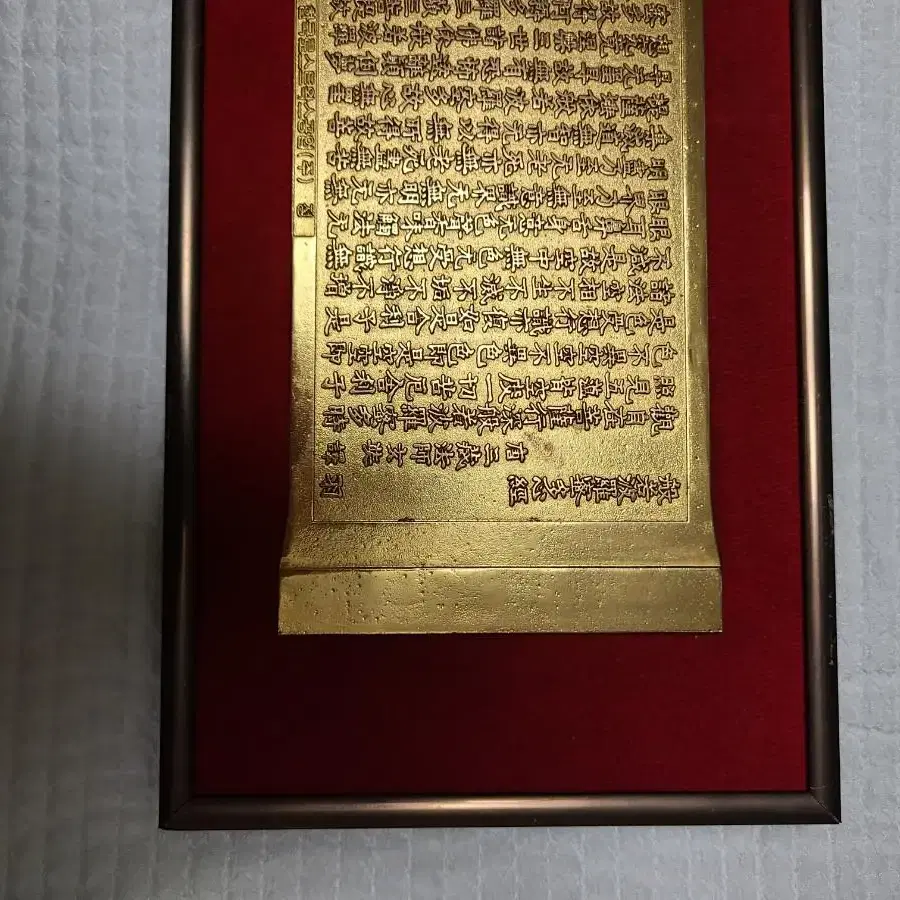 般若波羅蜜多心經
唐三藏法師玄奘 譯
觀自在菩薩行深般若波羅蜜多時
照見五蘊皆空度一切苦厄舍利子
色不異空空不異色色卽是空空卽
是色受想行識亦復如是舍利子是
諸法空相不生不滅不垢不淨不增
不減是故空中無色无受想行識無
眼耳鼻舌身意无色聲香味觸法无
眼界乃至無意識界无無明亦无無
明盡乃至无老死亦無老死盡無苦
集滅道無智亦无得以無所得故菩
提薩埵依般若波羅蜜多故心無罣
碍无罣碍故無有恐怖遠離顚倒夢
想究竟涅槃三世諸佛依般若波羅
蜜多故得阿耨多羅三藐三菩提故
(주) 증